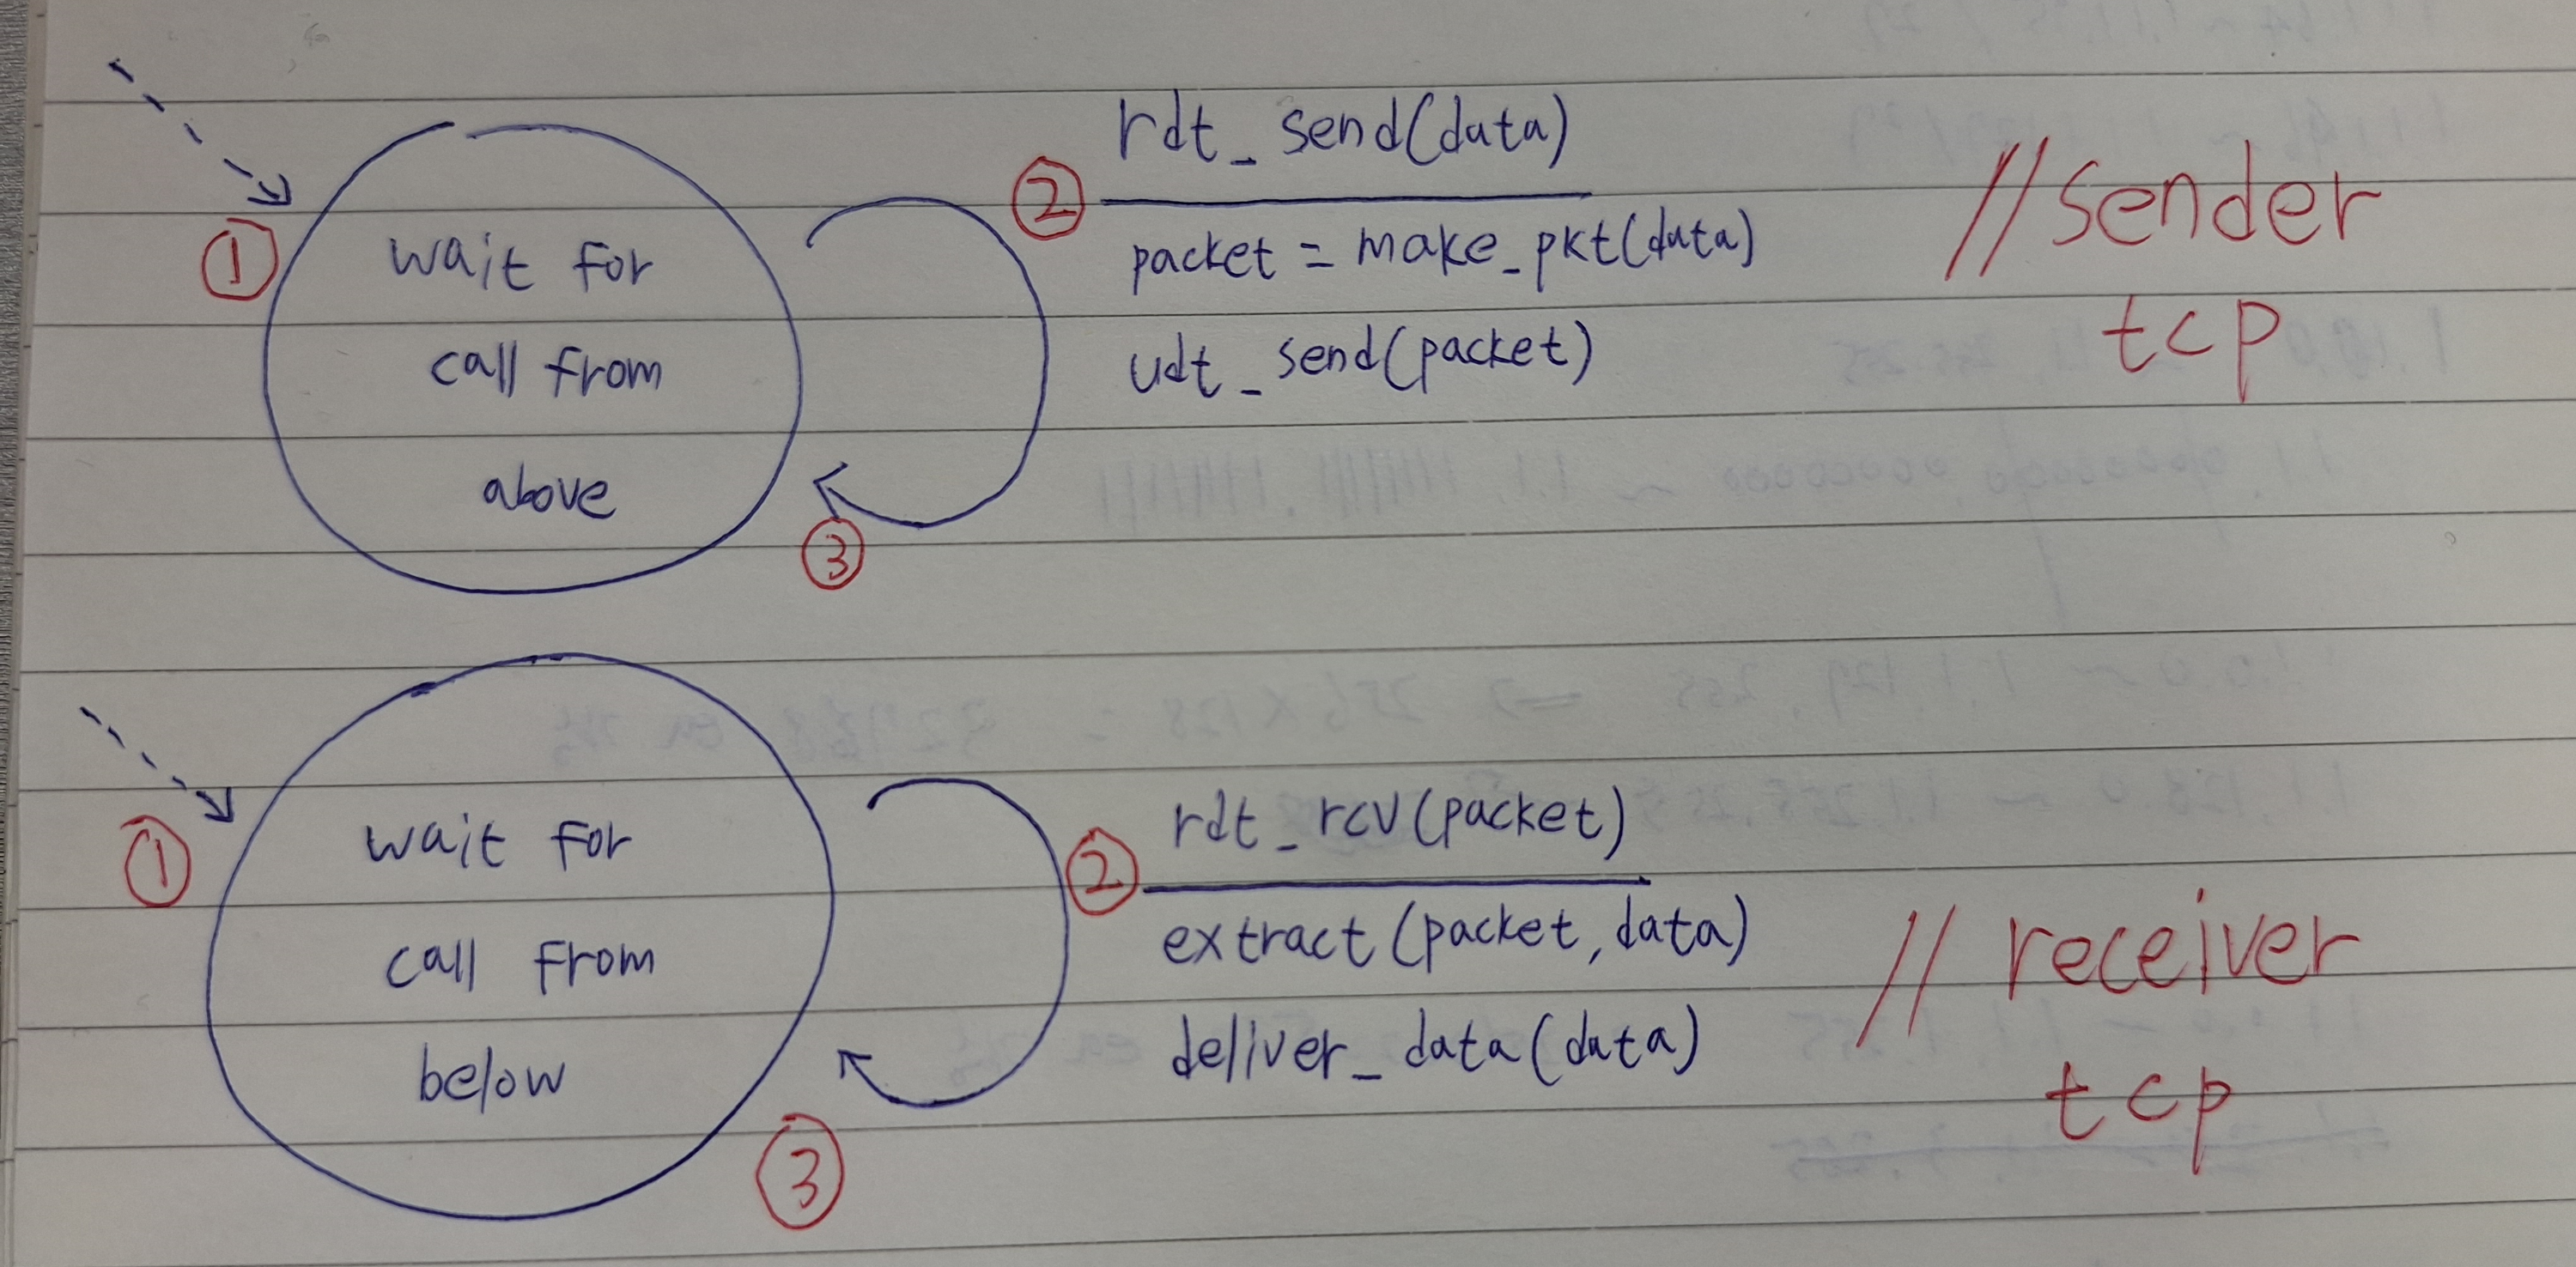 ① wait for
call from
above
② rdt_send(data)
packet = make_pkt(data)
udt_send(packet)
③
//sender
tcp
① wait for
call from
below
② rdt_rcv(packet)
extract(packet, data)
deliver_data(data)
③
// receiver
tcp